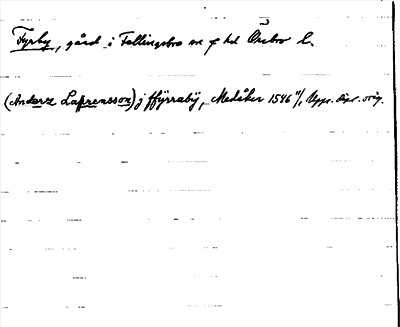 Fyrby, gård i Fellingsbro sn o hd Örebro l.
(Anderz Laffrensson) j ffyrraby, Medåker 1546 11/1 Uppv. dipr. orig.